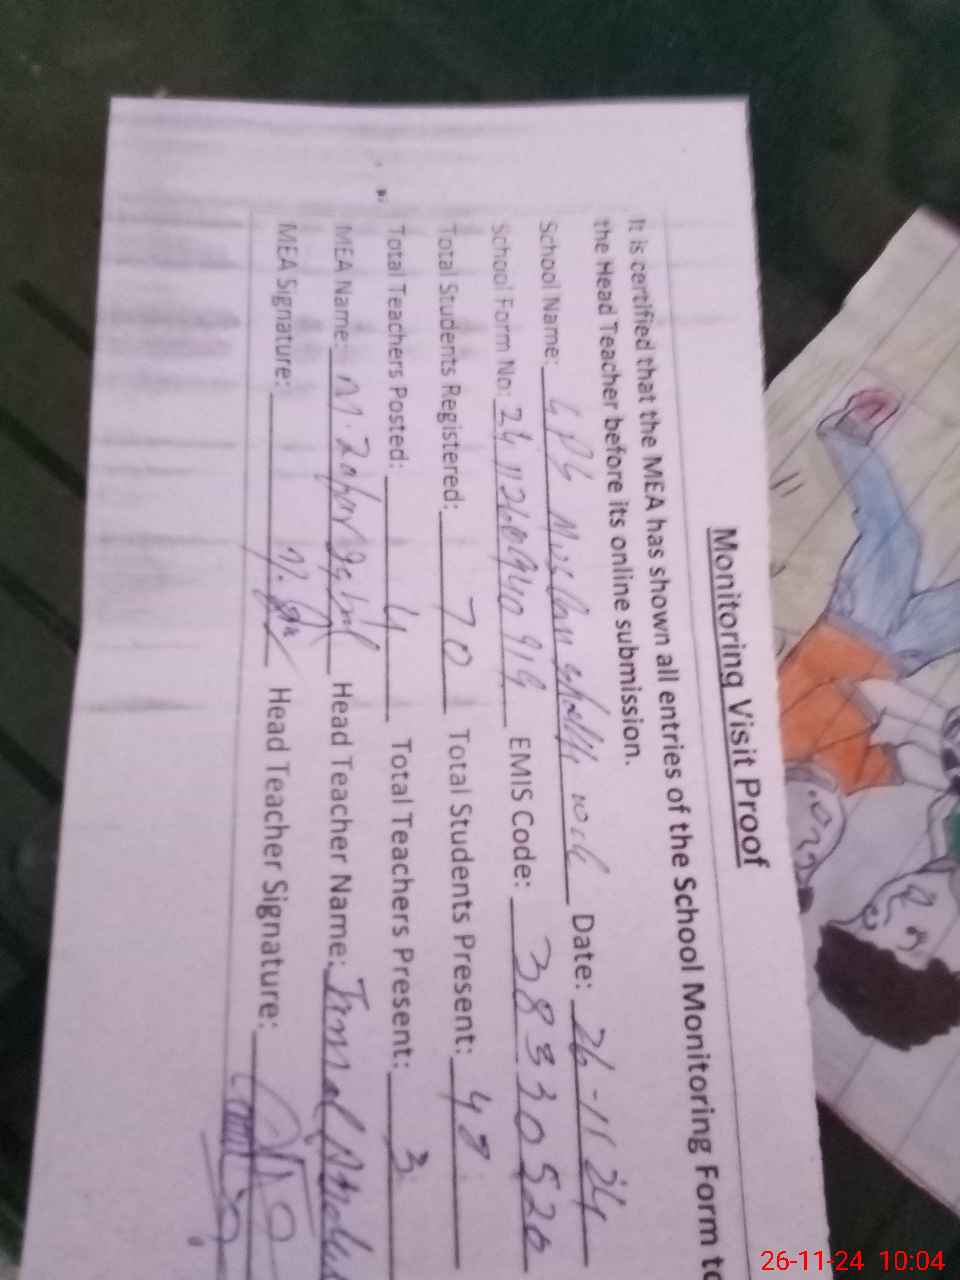 Monitoring Visit Proof
It is certified that the MEA has shown all entries of the School Monitoring Form to
the Head Teacher before its online submission.
School Name: GPS Date: 26-11-24
School Form No: EMIS Code: 38330526
Total Students Registered: 70 Total Students Present: 48
Total Teachers Posted: 4 Total Teachers Present: 3
MEA Name: M. Zafar Iqbal Head Teacher Name:
MEA Signature: Head Teacher Signature:
26-11-24 10:04